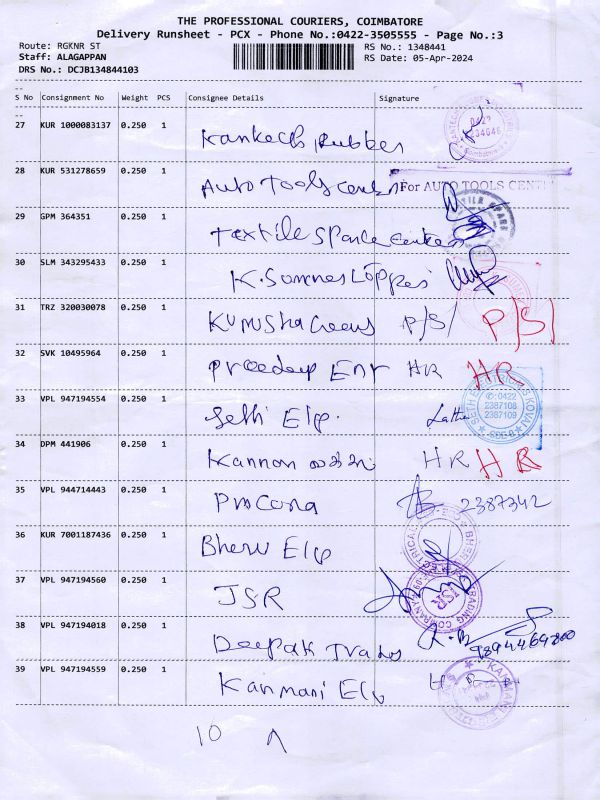 THE PROFESSIONAL COURIERS, COIMBATORE
Delivery Runsheet - PCX - Phone No.:0422-3505555 - Page No.:3
Route: RGKNR ST
RS No.: 1348441
Staff: ALAGAPPAN
RS Date: 05-Apr-2024
DRS No.: DCJB134844103
S No Consignment No Weight PCS Consignee Details Signature
27 KUR 1000083137 0.250 1 Rubber
28 KUR 531278659 0.250 1 Auto Tools Center For AUTO TOOLS CENT
29 GPM 364351 0.250 1 Textile Spare Center
30 SLM 343295433 0.250 1
31 TRZ 320030078 0.250 1 P/S/ P/S/
32 SVK 10495964 0.250 1 Pradeep Ent HR HR
33 VPL 947194554 0.250 1 Sethi Elp. Latha
SETH ELECTRICALS KOVAI
✆:0422
2387108
2387109
34 DPM 441906 0.250 1 Kannan HR HR
35 VPL 944714443 0.250 1 Procona 2387342
36 KUR 7001187436 0.250 1 Bheru Elp
37 VPL 947194560 0.250 1 JSR
JSR
TRADING COMPANY
38 VPL 947194018 0.250 1 Deepak Trades
9894469800
39 VPL 947194559 0.250 1 Kanmani Elp
10